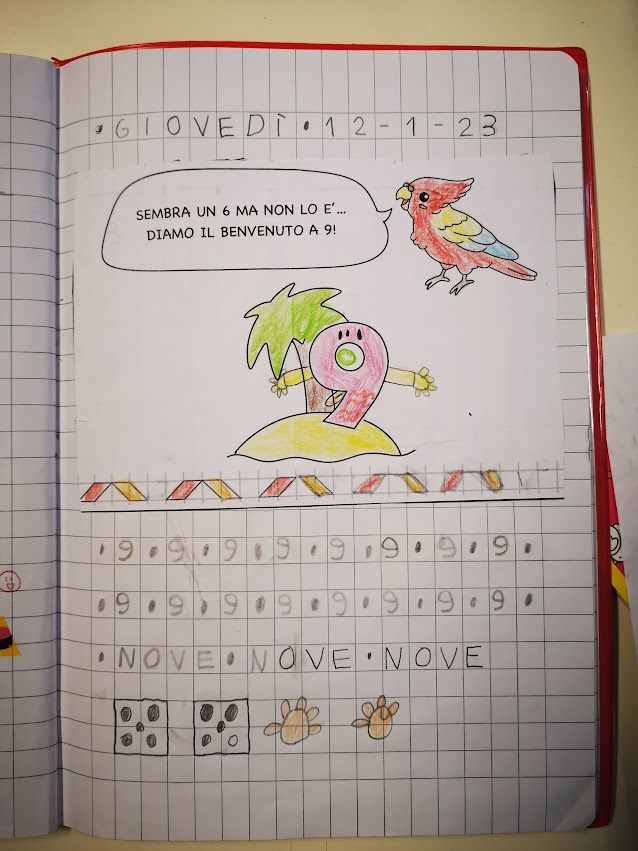 • GIOVEDÌ • 12-1-23
SEMBRA UN 6 MA NON LO E'...
DIAMO IL BENVENUTO A 9!
9
• 9 • 9 • 9 • 9 • 9 • 9 • 9 • 9 •
• 9 • 9 • 9 • 9 • 9 • 9 • 9 • 9 •
• NOVE • NOVE • NOVE